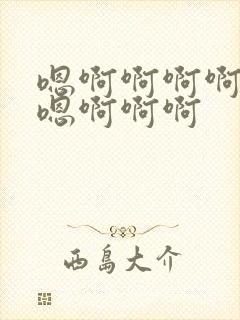 嗯啊啊啊啊
嗯啊啊啊
西岛大介